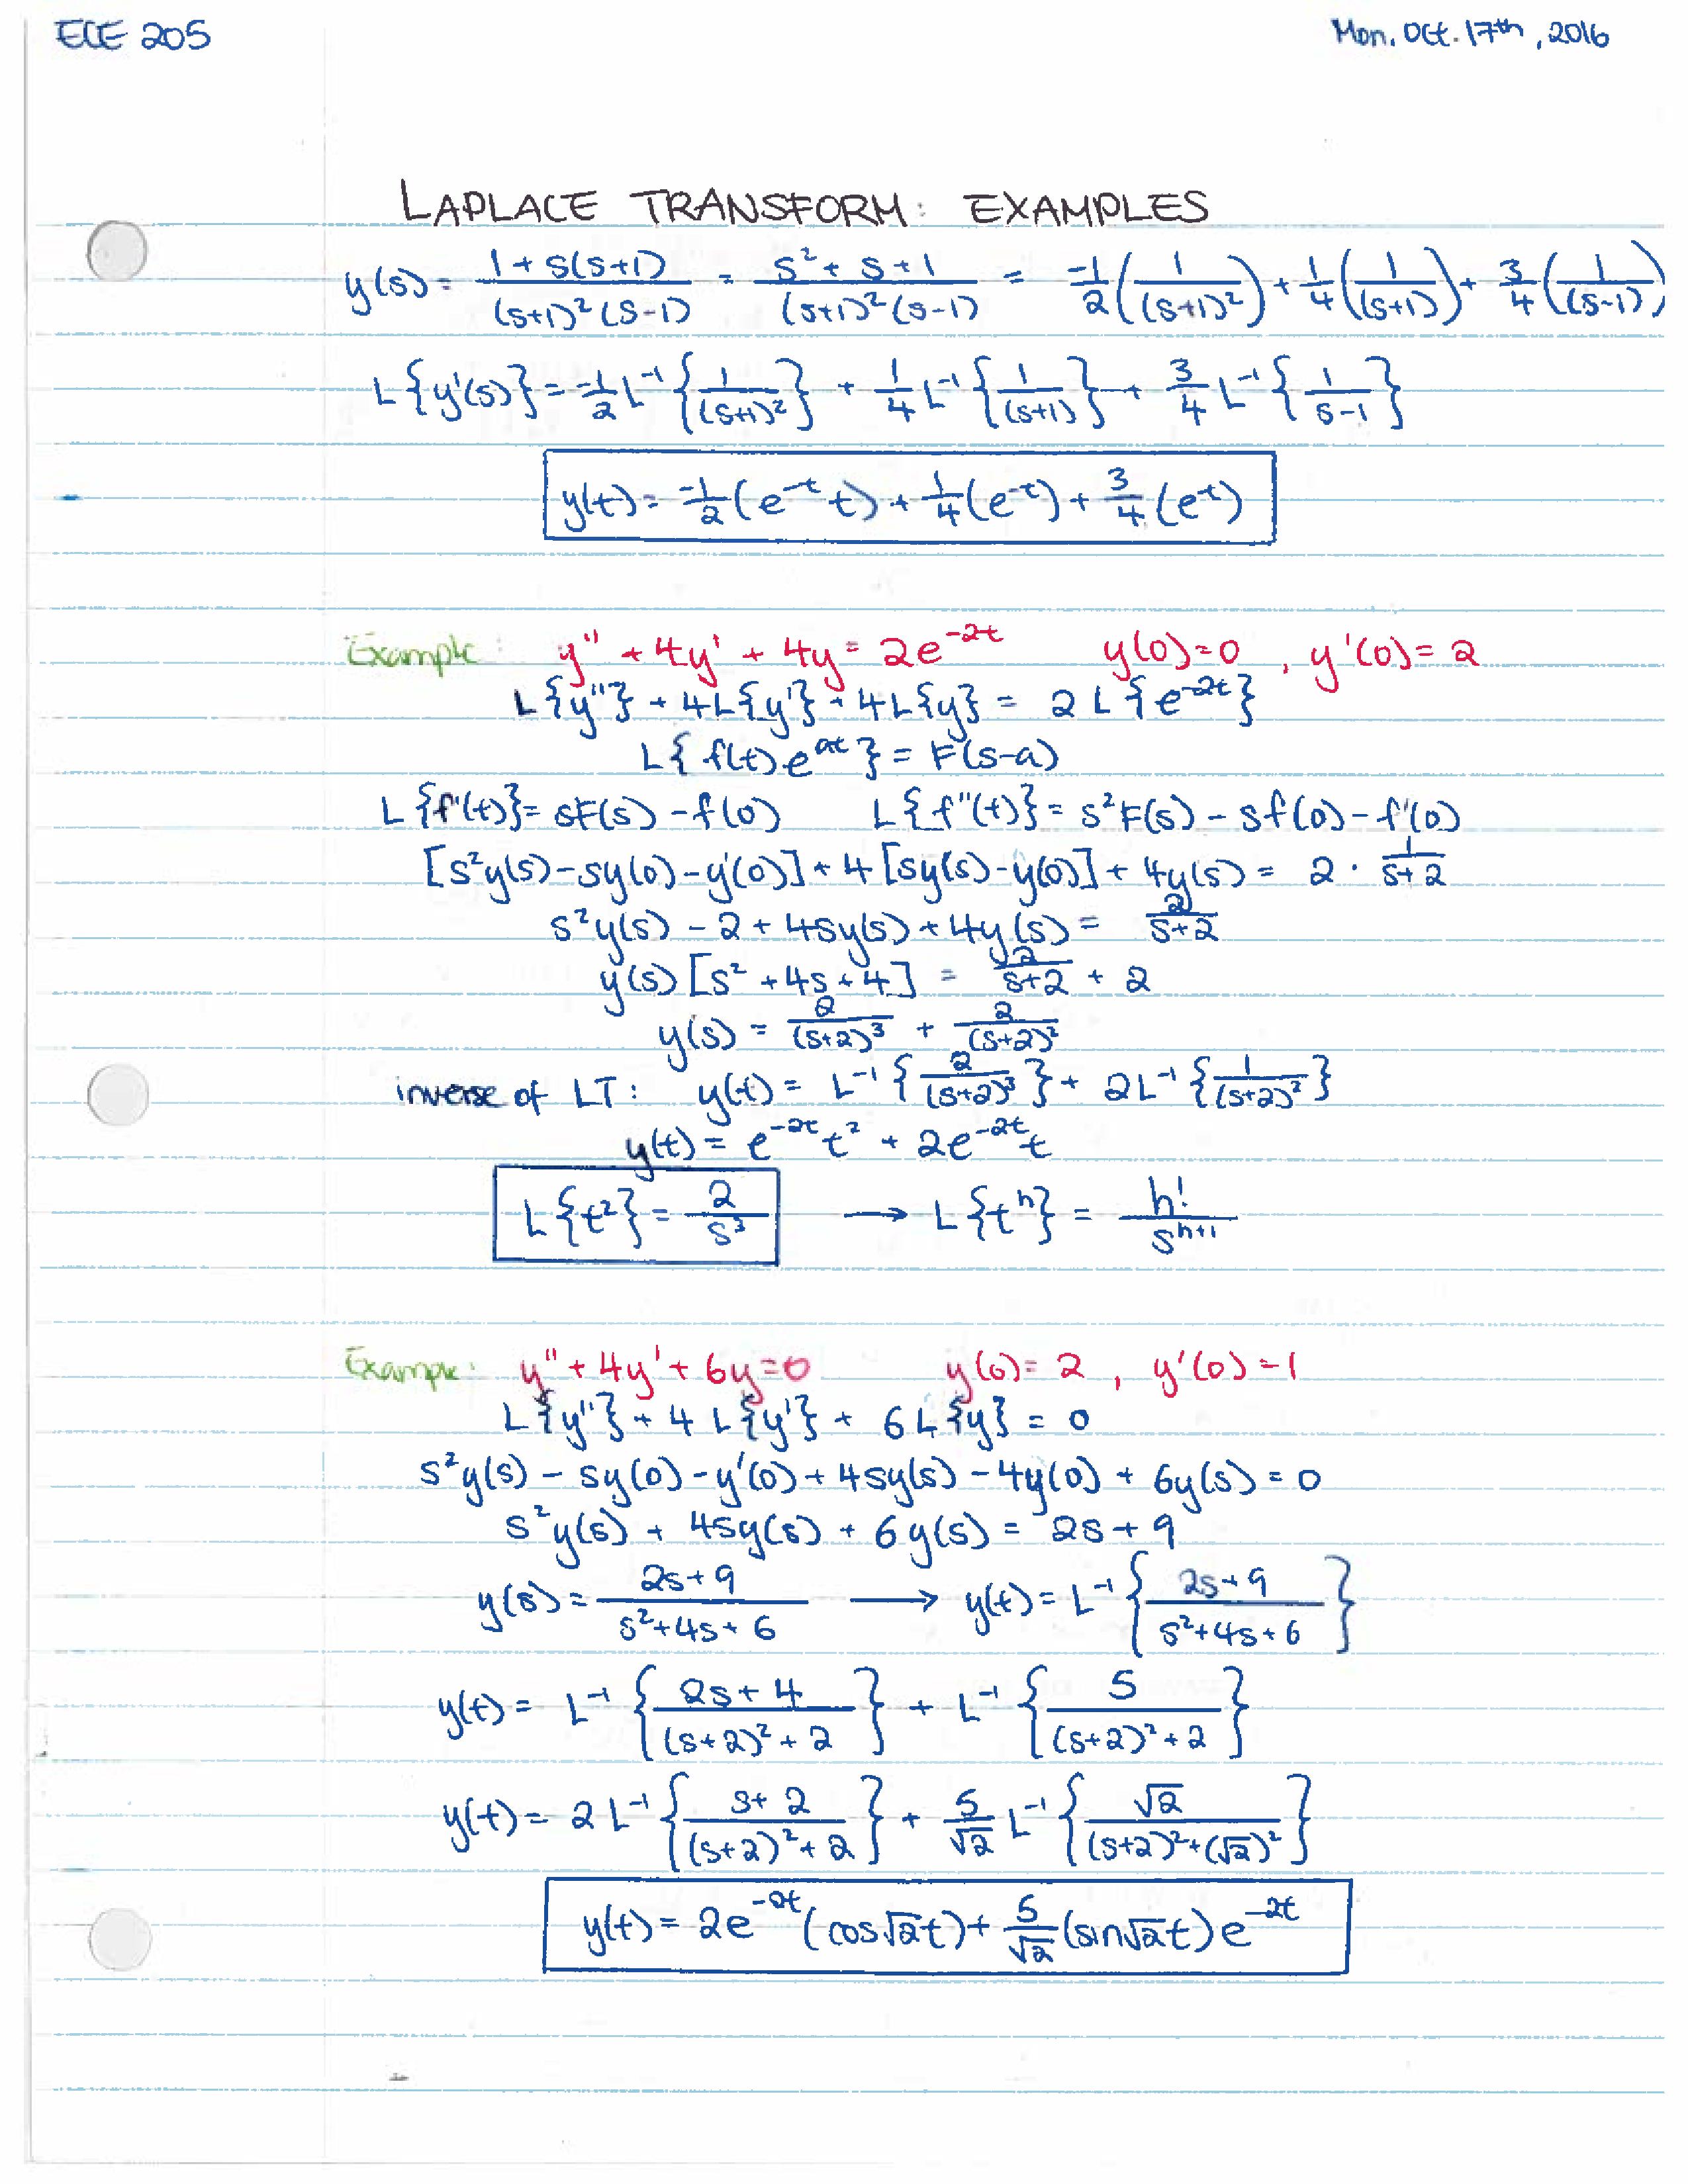 ECE 205
Mon. Oct. 17th, 2016
LAPLACE TRANSFORM: EXAMPLES
y(s) = \frac{1+s(s+1)}{(s+1)²(s-1)} = \frac{s²+s+1}{(s+1)²(s-1)} = \frac{-1}{2}(\frac{1}{(s+1)²}) + \frac{1}{4}(\frac{1}{(s+1)}) + \frac{3}{4}(\frac{1}{(s-1)})
L{y'(s)} = \frac{-1}{2} L⁻¹{\frac{1}{(s+1)²}} + \frac{1}{4} L⁻¹{\frac{1}{(s+1)}} + \frac{3}{4} L⁻¹{\frac{1}{s-1}}
y(t) = \frac{-1}{2}(e^{-t} t) + \frac{1}{4}(e^{-t}) + \frac{3}{4}(e^{t})
Example: y'' + 4y' + 4y = 2e^{-2t} y(0)=0 , y'(0)=2
L{y''} + 4L{y'} + 4L{y} = 2L{e^{-2t}}
L{f(t)e^{at}} = F(s-a)
L{f'(t)} = sF(s) - f(0) L{f''(t)} = s²F(s) - sf(0) - f'(0)
[s²y(s) - sy(0) - y'(0)] + 4[sy(s) - y(0)] + 4y(s) = 2 · \frac{1}{s+2}
s²y(s) - 2 + 4sy(s) + 4y(s) = \frac{2}{s+2}
y(s)[s² + 4s + 4] = \frac{2}{s+2} + 2
y(s) = \frac{2}{(s+2)³} + \frac{2}{(s+2)²}
inverse of LT: y(t) = L⁻¹{\frac{2}{(s+2)³}} + 2L⁻¹{\frac{1}{(s+2)²}}
y(t) = e^{-2t} t² + 2e^{-2t} t
L{t²} = \frac{2}{s³} → L{tⁿ} = \frac{n!}{s^{n+1}}
Example: y'' + 4y' + 6y = 0 y(0) = 2 , y'(0) = 1
L{y''} + 4L{y'} + 6L{y} = 0
s²y(s) - sy(0) - y'(0) + 4sy(s) - 4y(0) + 6y(s) = 0
s²y(s) + 4sy(s) + 6y(s) = 2s + 9
y(s) = \frac{2s+9}{s²+4s+6} → y(t) = L⁻¹{\frac{2s+9}{s²+4s+6}}
y(t) = L⁻¹{\frac{2s+4}{(s+2)²+2}} + L⁻¹{\frac{5}{(s+2)²+2}}
y(t) = 2L⁻¹{\frac{s+2}{(s+2)²+2}} + \frac{5}{√2} L⁻¹{\frac{√2}{(s+2)²+(√2)²}}
y(t) = 2e^{-2t}(cos√2t) + \frac{5}{√2}(sin√2t)e^{-2t}